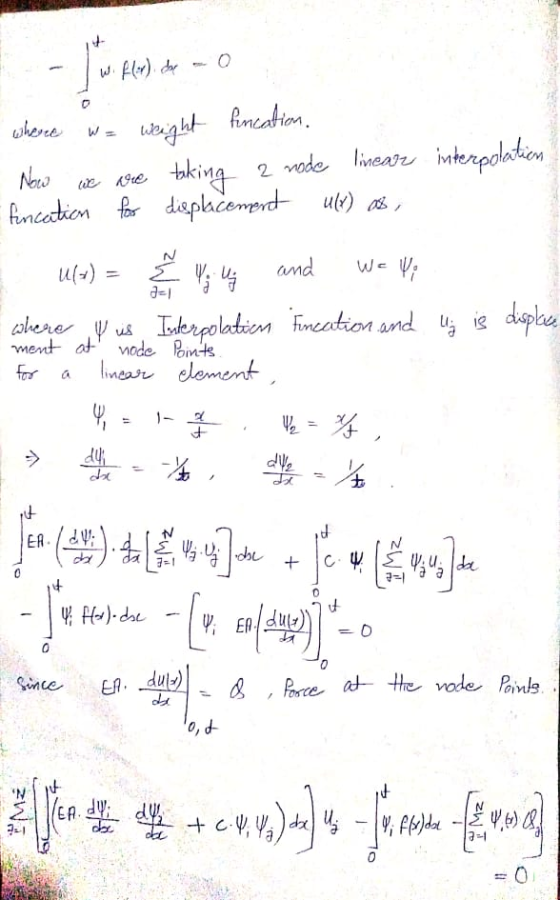 - ∫₀ᵗ w. f(x). dx = 0
where w = weight funcation.
Now we are taking 2 node linear interpolation
funcation for displacement u(x) as,
u(x) = Σ_{j=1}^{N} ψ_j u_j and w = ψ_i
where ψ us Interpolation Funcation and u_j is displace
ment at node Points.
for a linear element,
ψ₁ = 1 - x/t , ψ₂ = x/t ,
⇒ dψ₁/dx = -1/t , dψ₂/dx = 1/t .
∫₀ᵗ EA. (dψ_i/dx) . d/dx [Σ_{j=1}^{N} ψ_j. u_j] dx + ∫₀ᵗ c. ψ_i [Σ_{j=1}^{N} ψ_j u_j] dx
- ∫₀ᵗ ψ_i f(x). dx - [ψ_i EA. (du(x)/dx)]₀ᵗ = 0
Since EA. du(x)/dx |₀,ₜ = Q , Force at the node Points.
Σ_{j=1}^{N} [∫₀ᵗ (EA. dψ_i/dx dψ_j/dx + c. ψ_i ψ_j) dx] u_j - ∫₀ᵗ ψ_i f(x) dx - [Σ_{j=1}^{N} ψ_i(t) Q_j]
= 0